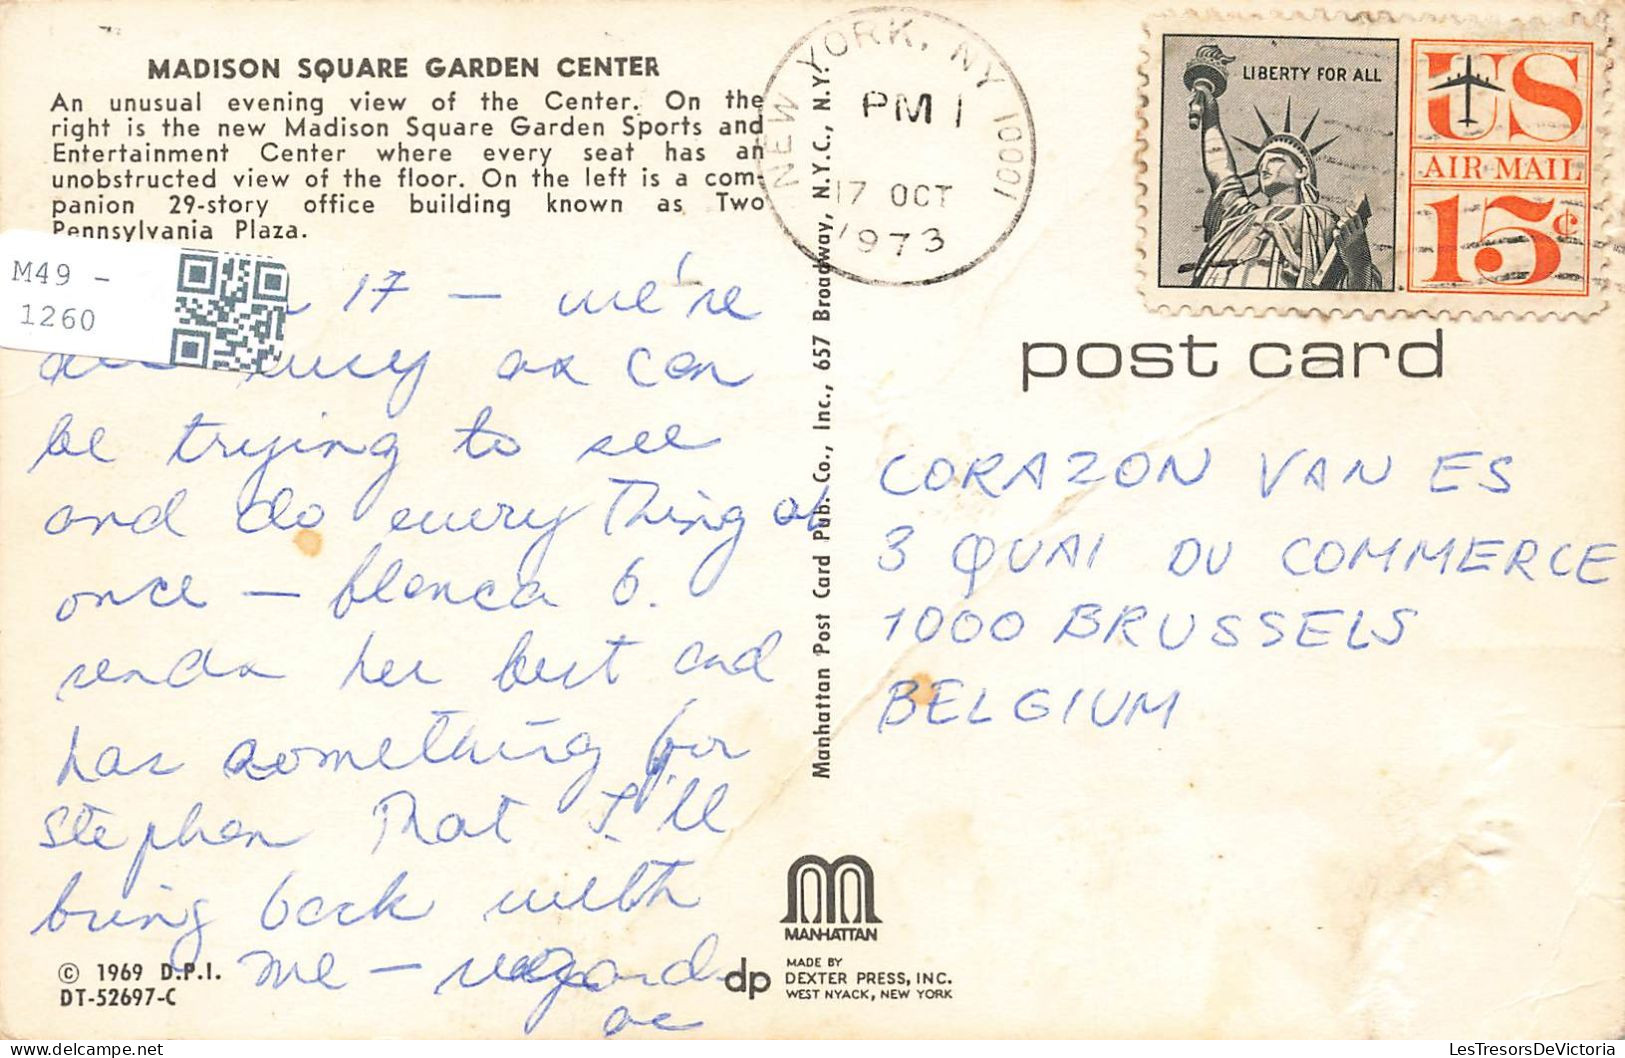 MADISON SQUARE GARDEN CENTER
An unusual evening view of the Center. On the
right is the new Madison Square Garden Sports and
Entertainment Center where every seat has an
unobstructed view of the floor. On the left is a com-
panion 29-story office building known as Two
Pennsylvania Plaza.
M49 -
1260
17 — we're
busy as can
be trying to see
and do every thing at
once — blanca b.
sends her best and
has something for
Stephen that I'll
bring back with
me — regards
© 1969 D.P.I.
DT-52697-C
Manhattan Post Card Pub. Co., Inc., 657 Broadway, N.Y.C., N.Y.
MANHATTAN
dp
MADE BY
DEXTER PRESS, INC.
WEST NYACK, NEW YORK
NEW YORK, NY 10001
PM 1
17 OCT
1973
LIBERTY FOR ALL
US
AIR MAIL
15¢
post card
CORAZON VAN ES
3 QUAI DU COMMERCE
1000 BRUSSELS
BELGIUM
LesTresorsDeVictoria